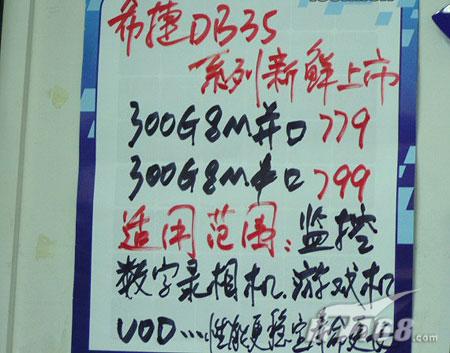 希捷DB35
系列新鲜上市
300G8M并口 779
300G8M串口 799
适用范围：监控
数字录相机、游戏机
VOD…性能更稳定寿命更长